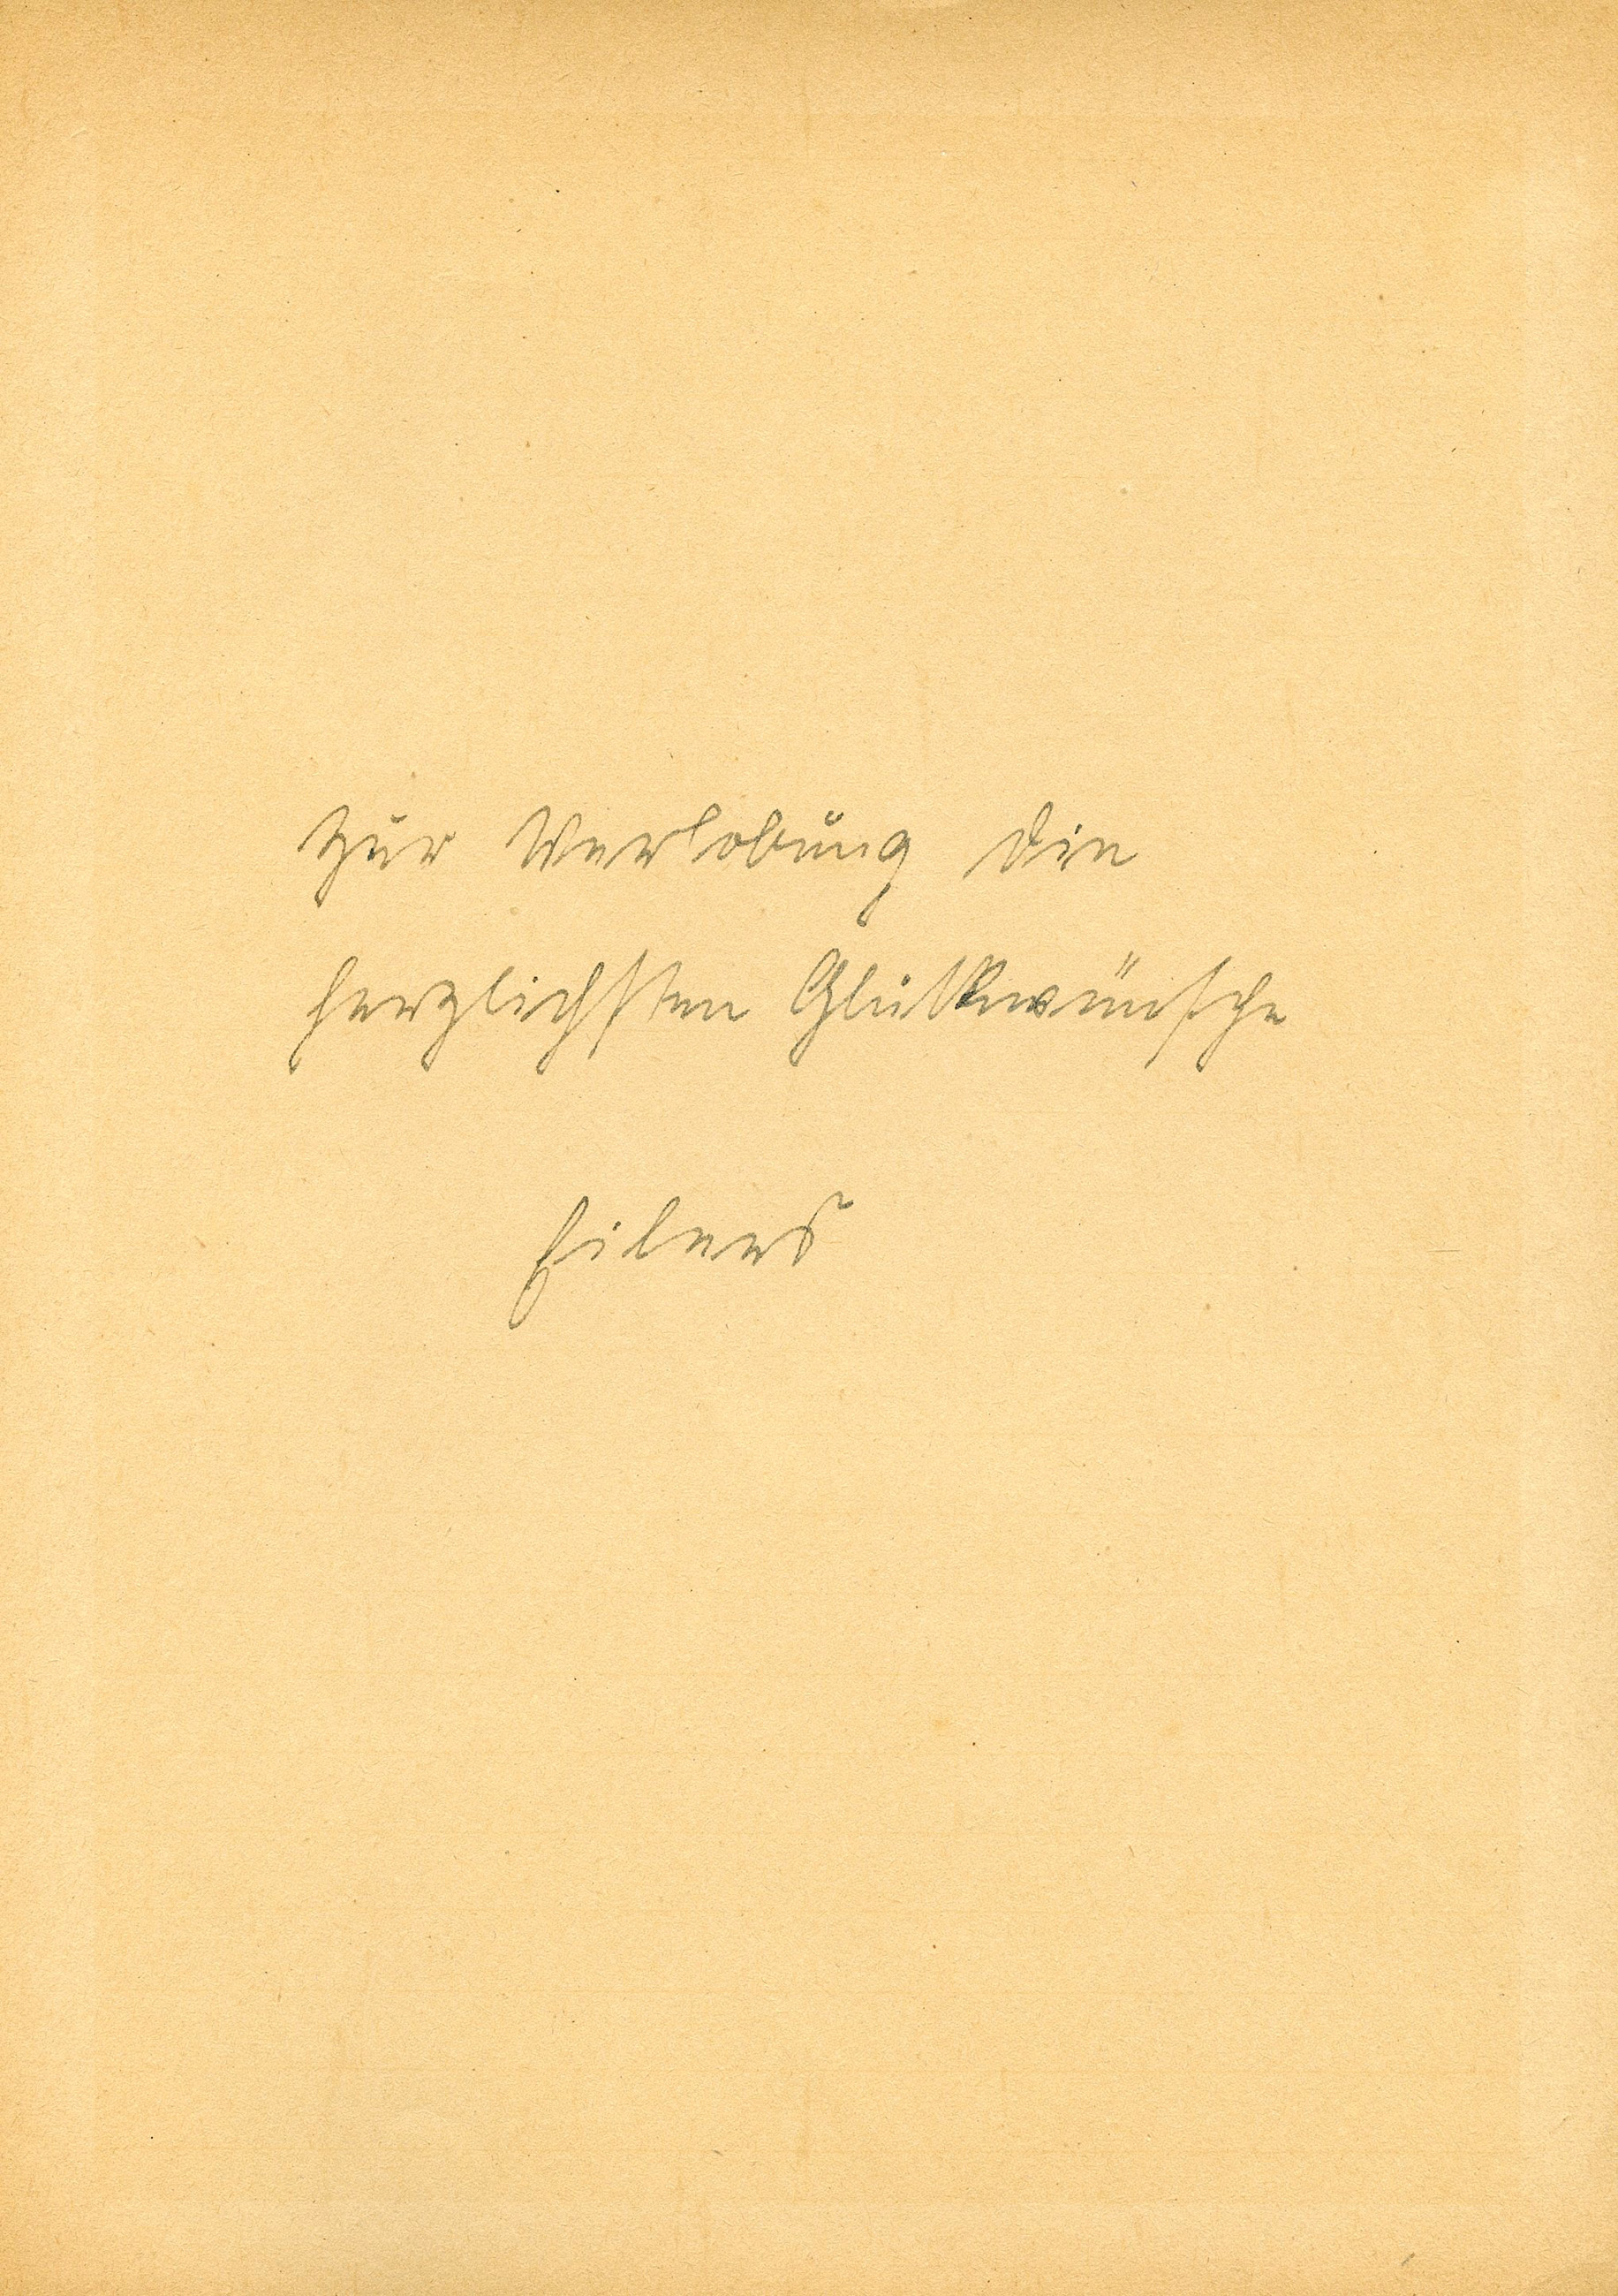 Zur Verlobung die
herzlichsten Glückwünsche
Eilers